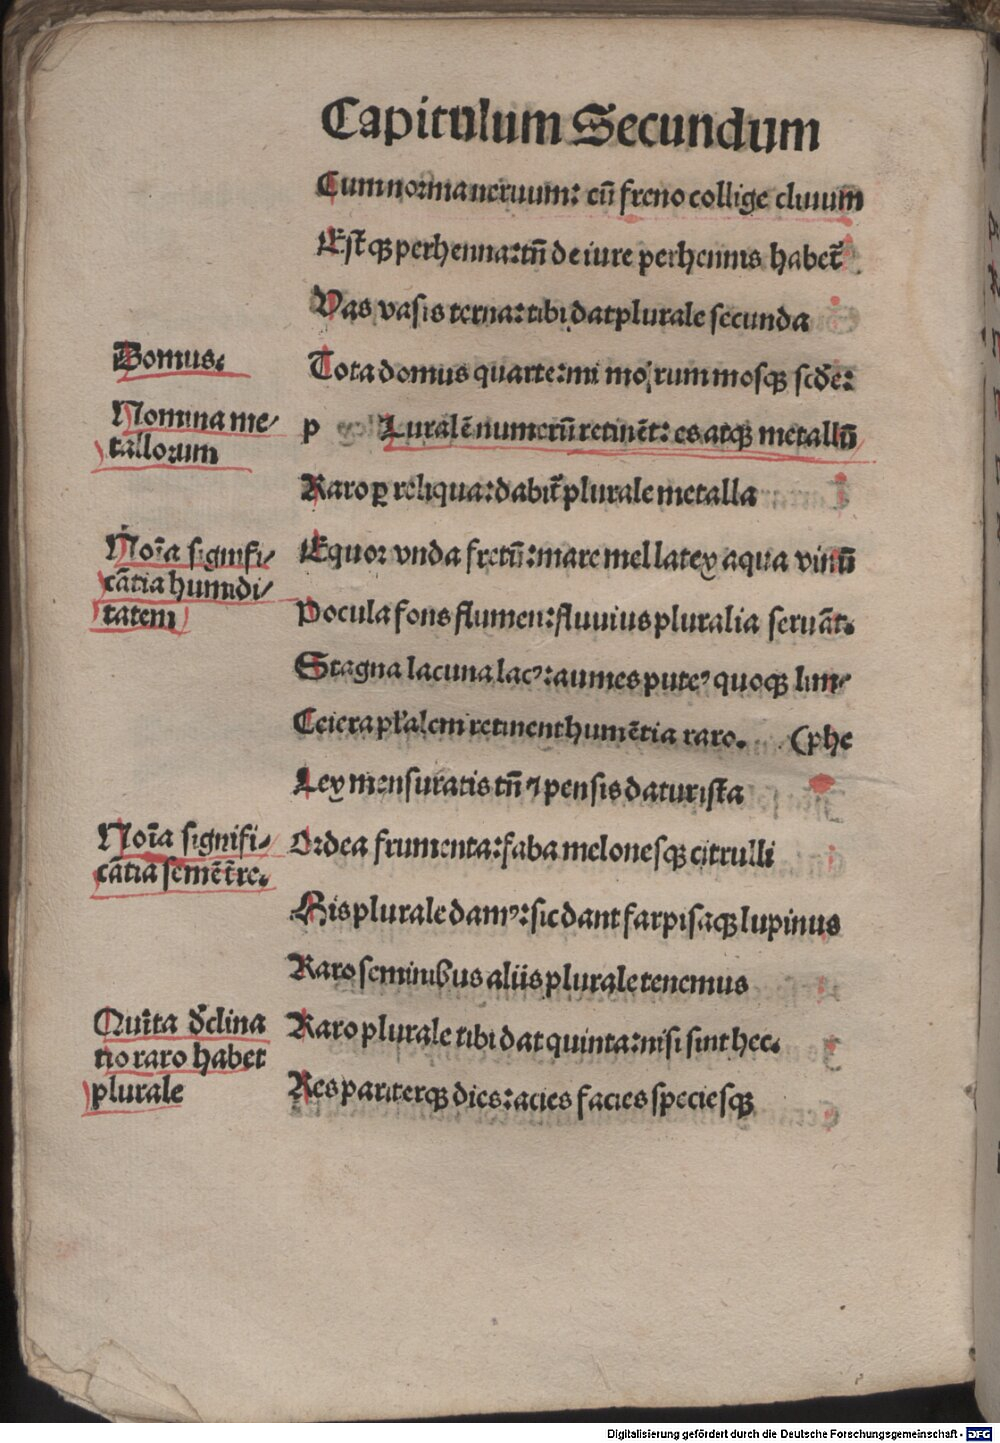 Capitulum Secundum
Cum norma neruum: cū freno collige cliuum
Est̄ qꝫ perhenna: tn̄ de iure perhennis habet̄
Vas vasis terna: tibi dat plurale secunda
Domus.
Tota domus quarte: mi mo rum mosqꝫ sed̄e:
Nomina me⸗
tallorum
p Luralē numerū retinēt: es atqꝫ metallū
Raro ꝑ reliqua: dabit̄ plurale metalla
Noīa signifi⸗
cātia humidi⸗
tatem
Equor vnda fretū: mare mel latex aqua vinū
Pocula fons flumen: fluuius pluralia seruāt.
Stagna lacuna lacꝰ: amnes puteꝰ quoqꝫ lim⸗
Cetera pl̄alem retinent humētia raro. (phe
Lex mensuratis tn̄ ⁊ pensis datur ista
Noīa signifi⸗
cātia semēt̄re.
Ordea frumenta: faba melonesqꝫ citrulli
His plurale damꝰ: sic dant far pisaqꝫ lupinus
Raro seminibus aliis plurale tenemus
Quīta d̄clina
tio raro habet
plurale
Raro plurale tibi dat quinta: nisi sint hec.
Res pariterqꝫ dies: acies facies speciesqꝫ
Digitalisierung gefördert durch die Deutsche Forschungsgemeinschaft - DFG